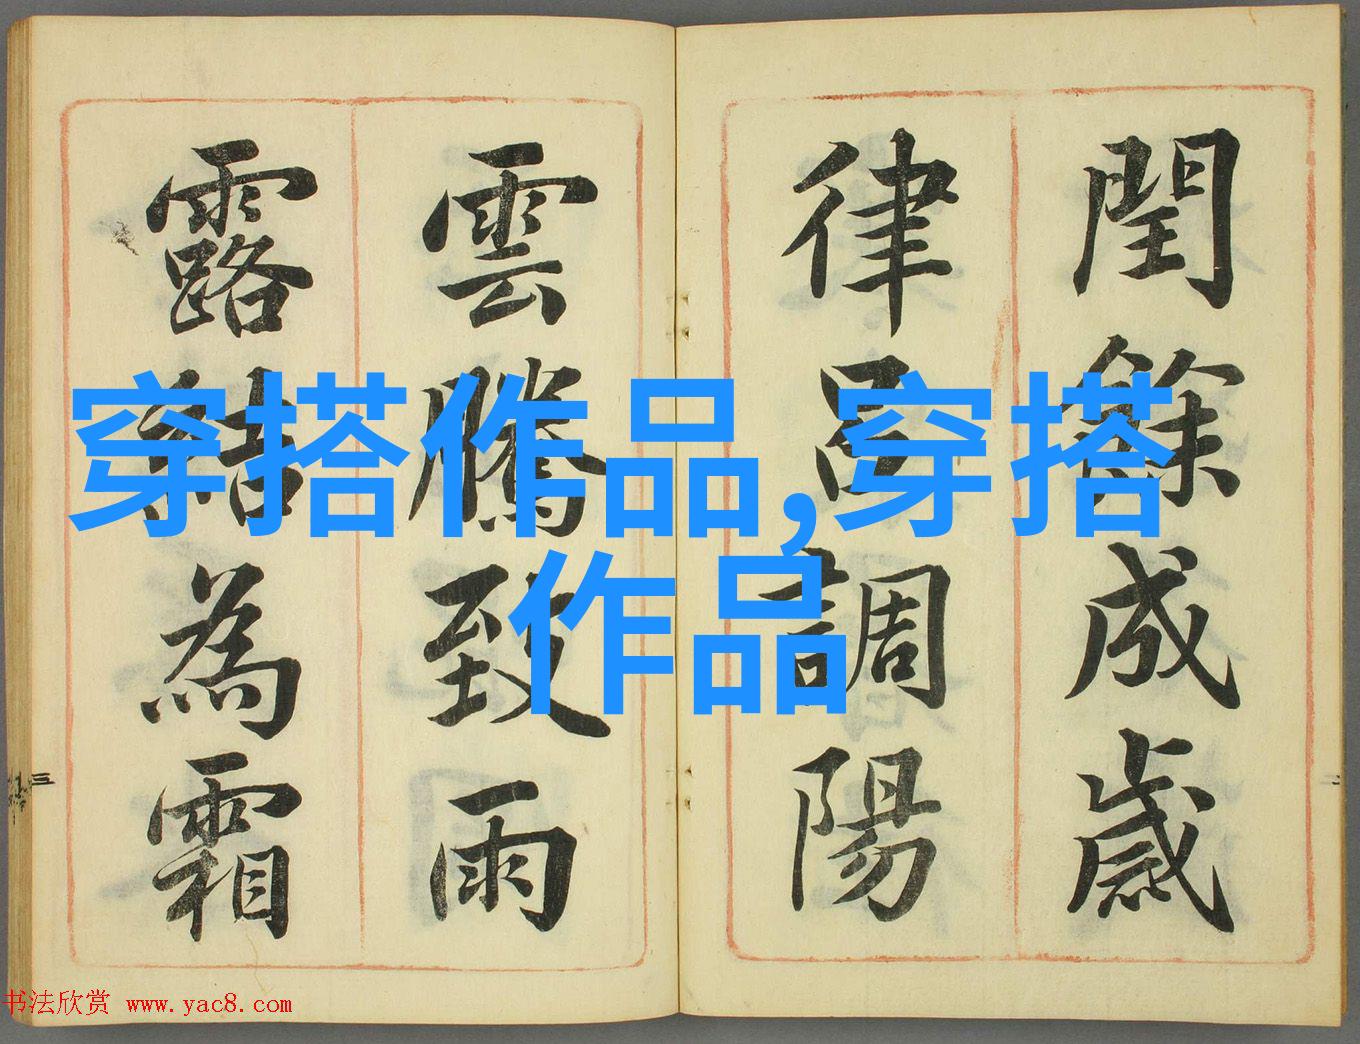 閏餘成歲
律呂調陽
雲騰致雨
露結為霜
穿搭作品,穿搭
作品
三
二
书法欣赏 www.yac8.com